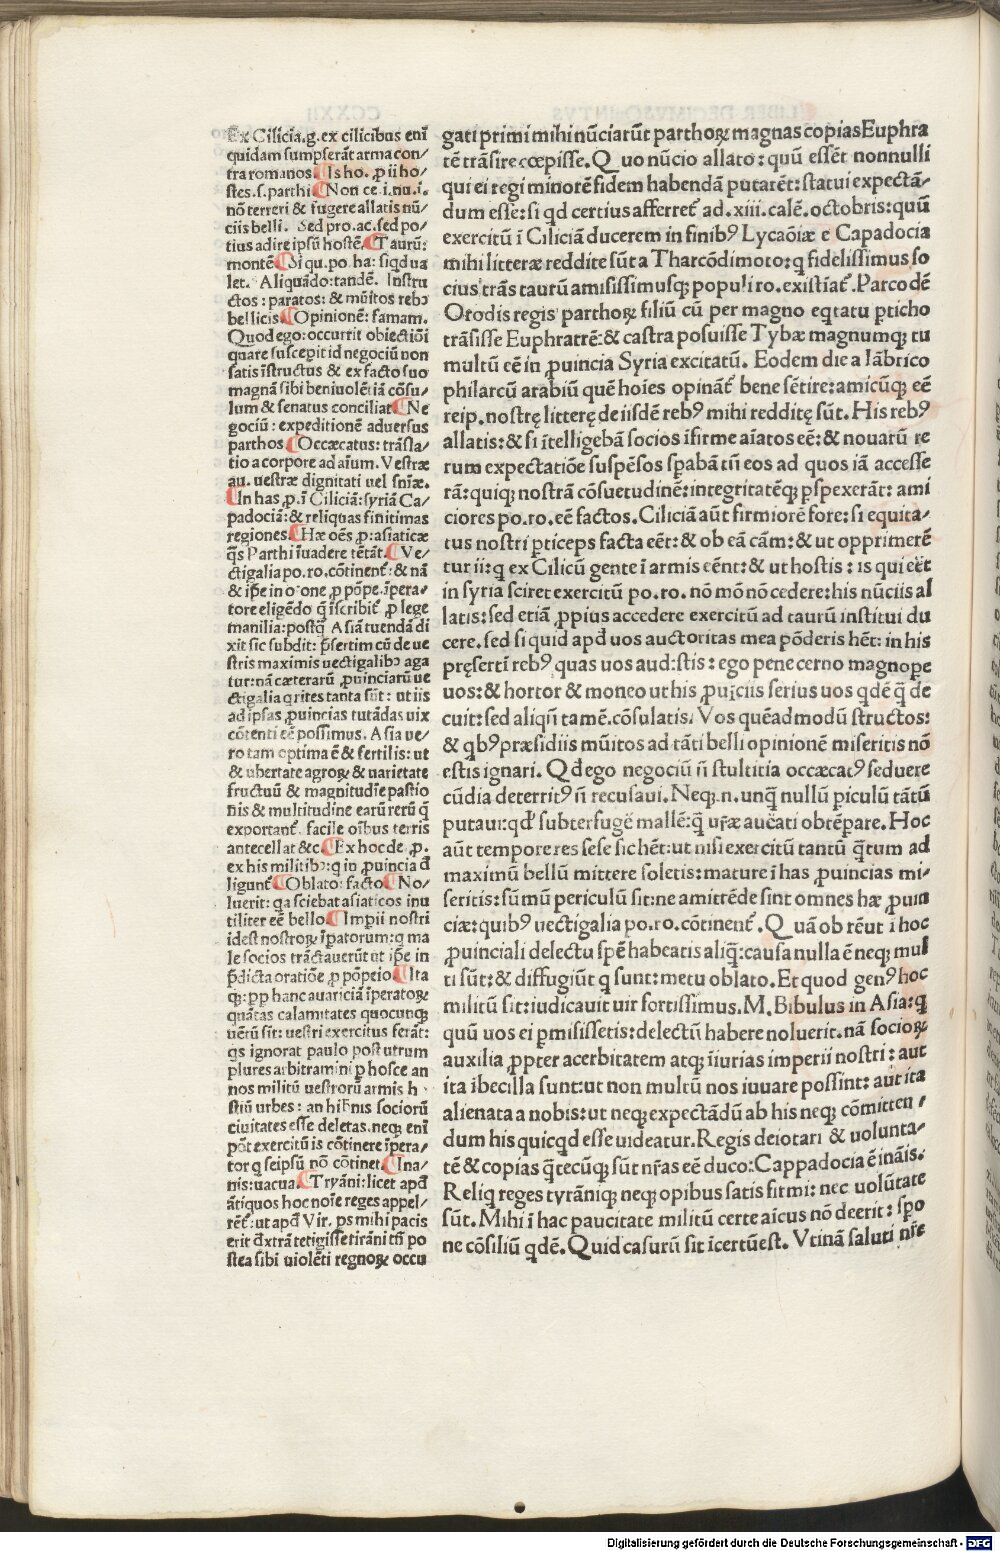 Ex Cilicia.g.ex cilicibus enī
quidam sumpserāt arma con/
tra romanos. Is ho. ꝓ ii ho/
stes.s.parthi Non ce.i.nu.i.
nō terreri & fugere allatis nū/
ciis belli. Sed pro.ac.sed po/
tius adire ipsū hostē. Taurū:
montē Si qu.po.ha: siqd ua
let. Aliquādo: tandē. Instru
ctos: paratos: & mūitos rebꝰ
bellicis. Opinionē: famam.
Quod ego: occurrit obiectiōi
quare suscepit id negociū non
satis īstructus & ex facto suo
magnā sibi beniuolētiā cōsu/
lum & senatus conciliat Ne
gociū: expeditionē aduersus
parthos. Occæcatus: trāsla/
tio a corpore ad aīum. Vestræ
au. uestræ dignitati uel snīæ.
In has.p. ī Ciliciā: syriā Ca/
padociā: & reliquas finitimas
regiones. Hæ oēs p: asiaticæ
q̄s Parthi īuadere tētāt. Ve/
ctigalia po.ro.cōtinent̄: & nā
& ip̄e in o⁊one ꝓ pōpe. īpera/
tore eligēdo q̄ īscribit̄ ꝓ lege
manilia: postq̄ Asiā tuendā di
xit sic subdit: p̄sertim cū de ue
stris maximis uectigalibꝰ aga
tur: nā cæterarū ꝓuinciarū ue
ctigalia qrites tanta sūt: ut iis
ad ipsas ꝓuincias tutādas uix
cōtenti eē possimus. Asia ue/
ro tam optima ē & fertilis: ut
& ubertate agroꝝ & uarietate
fructuū & magnitudīe pastio
nis & multitudine earū rerū q̄
exportant̄ facile oībus terris
antecellat &c. Ex hoc de .p.
ex his militibꝰ: q in ꝓuincia d̄
ligunt̄ Oblato: facto No/
luerit: qa sciebat asiaticos inu
tiliter eē bello. Impii nostri
idest nostroꝝ īpatorum: q ma
le socios trāctauerūt ut ip̄e in
p̄dicta oratiōe ꝓ pōpeio. Ita
qꝫ: pp hanc auariciā īperatoꝝ
quātas calamitates quocunqꝫ
uētū sit: uestri exercitus ferāt:
qs ignorat paulo post utrum
plures arbitramini p hosce an
nos militū uestrorū armis h
stiū urbes: an hibnis sociorū
ciuitates esse deletas. neqꝫ enī
pōt exercitū is cōtinere īpera/
tor q seipsū nō cōtinet. Ina/
nis: uacua. Tryāni: licet apd̄
ātiquos hoc noīe reges appel/
rēt̄: ut apd̄ Vir. ps mihi pacis
erit dxtrā tetigisse tirāni tn̄ po
stea sibi uiolēti regnoꝝ occu
gati primi mihi nūciarūt parthoꝝ magnas copias Euphra
tē trāsire cœpisse. Quo nūcio allato: quū essēt nonnulli
qui ei regi minorē fidem habendā putarēt: statui expectā/
dum esse: si qd certius afferret̄ ad.xiii.calē.octobris: quū
exercitū ī Ciliciā ducerem in finibꝰ Lycaōiæ e Capadocia
mihi litteræ reddite sūt a Tharcōdimoto: q fidelissimus so
cius trās taurū amisissimusqꝫ populi ro.existiāt̄. Parco dē
Orodis regis parthoꝝ filiū cū per magno eqtatu pticho
trāsisse Euphratrē: & castra posuisse Tybæ magnumqꝫ tu
multū eē in ꝓuincia Syria excitatū. Eodem die a Iābrico
philarcū arabiū quē hoīes opināt̄ bene sētire: amicūqꝫ eē
reip.nostrę litterę de iisdē rebꝰ mihi redditę sūt. His rebꝰ
allatis: & si ītelligebā socios īfirme aīatos eē: & nouarū re
rum expectatiōe suspēsos spabā tn̄ eos ad quos iā accesse
rā: quiqꝫ nostrā cōsuetudinē: integritatēqꝫ pspexerāt: ami
ciores po.ro.eē factos. Ciliciā aūt firmiorē fore: si equita/
tus nostri pticeps facta eēt: & ob eā cām: & ut opprimerē
tur ii: q ex Cilicū gente ī armis eēnt: & ut hostis: is qui eēt
in syria sciret exercitū po.ro. nō mō nō cedere: his nūciis al
latis: sed etiā ꝓpius accedere exercitū ad taurū institui du
cere. sed si quid apd̄ uos auctoritas mea pōderis hēt: in his
pręsertī rebꝰ quas uos audistis: ego pene cerno magnope
uos: & hortor & moneo ut his ꝓuīciis serius uos qdē q̄ de
cuit: sed aliqn̄ tamē. cōsulatis. Vos quēadmodū structos:
& qbꝰ præsidiis mūitos ad tāti belli opinionē miseritis nō
estis ignari. Qd̄ ego negociū n̄ stultitia occæcatꝰ seduere
cūdia deterritꝰ n̄ recusaui. Neqꝫ.n. unq̄ nullū piculū tātū
putaui: qd̄ subterfugē mallē: q̄ ur̄æ auctati obtēpare. Hoc
aūt tempore res sese sic hēt: ut nisi exercitū tantū q̄tum ad
maximū bellū mittere soletis: mature ī has ꝓuincias mi/
seritis: sūmū periculū sit: ne amittēde sint omnes hæ ꝓuin
ciæ: quibꝰ uectigalia po.ro.cōtinent̄. Quā ob rē ut ī hoc
ꝓuinciali delectu spē habeatis aliq̄: causa nulla ē neqꝫ mul
ti sūt: & diffugiūt q sunt: metu oblato. Et quod genꝰ hoc
militū sit: iudicauit uir fortissimus. M. Bibulus in Asia: q
quū uos ei pmisissetis: delectū habere noluerit. nā socioꝝ
auxilia ꝓpter acerbitatem atqꝫ īiurias imperii nostri: aut
ita ībecilla sunt: ut non multū nos iuuare possint: aūt ita
alienata a nobis: ut neqꝫ expectādū ab his neqꝫ cōmitten/
dum his quicqd esse uideatur. Regis deiotari & uolunta/
tē & copias q̄tecūqꝫ sūt nr̄as eē duco: Cappadocia ē ināis.
Reliq reges tyrāniqꝫ neqꝫ opibus satis firmi: nec uolūtate
sūt. Mihi ī hac paucitate militū certe aīcus nō deerit: spo
ne cōsiliū qdē. Quid casurū sit īcertū est. Vtinā saluti nr̄e
Digitalisierung gefördert durch die Deutsche Forschungsgemeinschaft - DFG